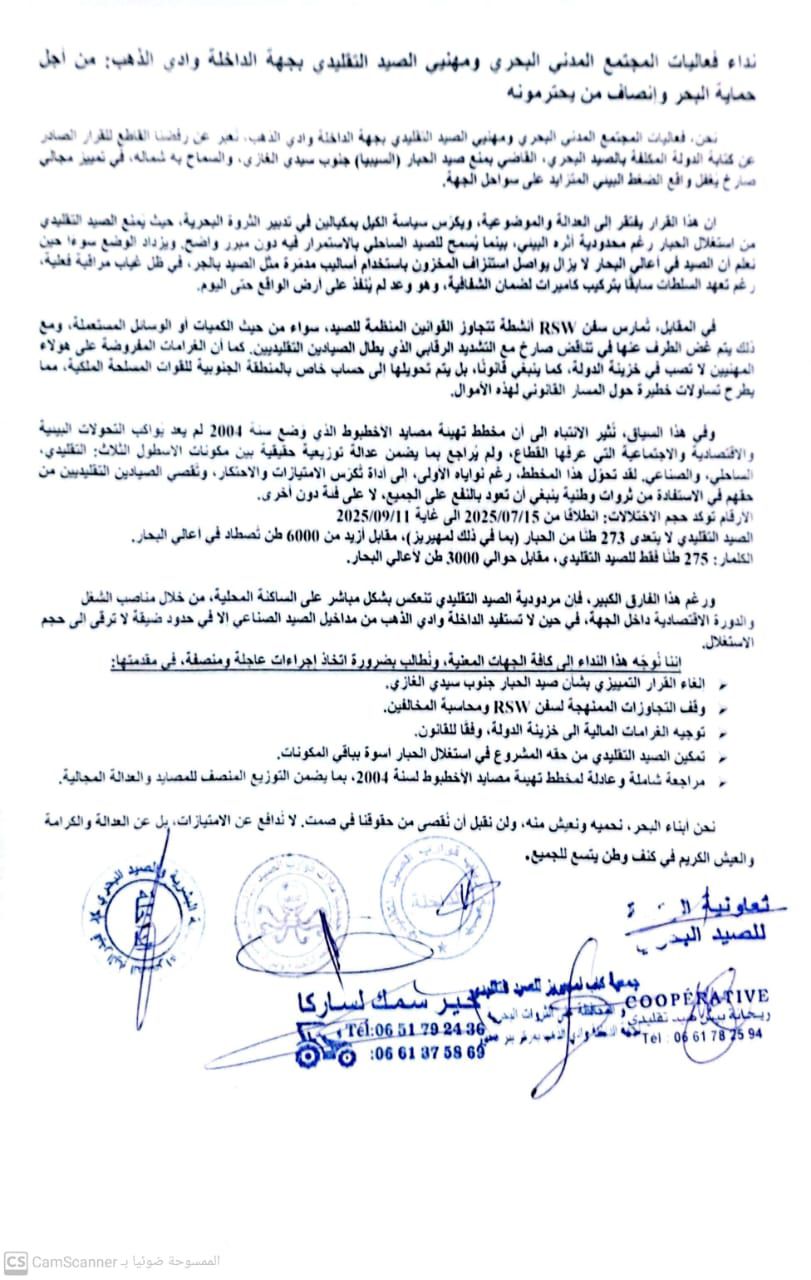 نداء فعاليات المجتمع المدني البحري ومهنيي الصيد التقليدي بجهة الداخلة وادي الذهب: من أجل
حماية البحر وإنصاف من يحترمونه
نحن، فعاليات المجتمع المدني البحري ومهنيي الصيد التقليدي بجهة الداخلة وادي الذهب، نُعبر عن رفضنا القاطع للقرار الصادر
عن كتابة الدولة المكلفة بالصيد البحري، القاضي بمنع صيد الحبار (السيبيا) جنوب سيدي الغازي، والسماح به شماله، في تمييز مجالي
صارخ يُغفل واقع الضغط البيئي المتزايد على سواحل الجهة.
ان هذا القرار يفتقر إلى العدالة والموضوعية، ويكرّس سياسة الكيل بمكيالين في تدبير الثروة البحرية، حيث يُمنع الصيد التقليدي
من استغلال الحبار رغم محدودية أثره البيئي، بينما يُسمح للصيد الساحلي بالاستمرار فيه دون مبرر واضح. ويزداد الوضع سوءا حين
نعلم أن الصيد في أعالي البحار لا يزال يواصل استنزاف المخزون باستخدام أساليب مدمّرة مثل الصيد بالجر، في ظل غياب مراقبة فعلية،
رغم تعهد السلطات سابقًا بتركيب كاميرات لضمان الشفافية، وهو وعد لم يُنفذ على أرض الواقع حتى اليوم.
في المقابل، تُمارس سفن RSW أنشطة تتجاوز القوانين المنظمة للصيد، سواء من حيث الكميات أو الوسائل المستعملة، ومع
ذلك يتم غض الطرف عنها في تناقض صارخ مع التشديد الرقابي الذي يطال الصيادين التقليديين. كما أن الغرامات المفروضة على هولاء
المهنيين لا تصب في خزينة الدولة، كما ينبغي قانونًا، بل يتم تحويلها الى حساب خاص بالمنطقة الجنوبية للقوات المسلحة الملكية، مما
يطرح تساولات خطيرة حول المسار القانوني لهذه الأموال.
وفي هذا السياق، نُثير الانتباه الى أن مخطط تهيئة مصايد الاخطبوط الذي وُضع سنة 2004 لم يعد يُواكب التحولات البيئية
والاقتصادية والاجتماعية التي عرفها القطاع، ولم يُراجع بما يضمن عدالة توزيعية حقيقية بين مكونات الاسطول الثلاث: التقليدي،
الساحلي، والصناعي. لقد تحوّل هذا المخطط، رغم نواياه الأولى، الى أداة تُكرّس الامتيازات والاحتكار، وتُقصي الصيادين التقليديين من
حقهم في الاستفادة من ثروات وطنية ينبغي أن تعود بالنفع على الجميع، لا على فئة دون أخرى.
الأرقام توكد حجم الاختلالات: انطلاقا من 2025/07/15 الى غاية 2025/09/11
الصيد التقليدي لا يتعدى 273 طنًا من الحبار (بما في ذلك لمهيريز)، مقابل أزيد من 6000 طن تُصطاد في أعالي البحار.
الكلمار: 275 طنًا فقط للصيد التقليدي، مقابل حوالي 3000 طن لأعالي البحار.
ورغم هذا الفارق الكبير، فإن مردودية الصيد التقليدي تنعكس بشكل مباشر على الساكنة المحلية، من خلال مناصب الشغل
والدورة الاقتصادية داخل الجهة، في حين لا تستفيد الداخلة وادي الذهب من مداخيل الصيد الصناعي إلا في حدود ضيقة لا ترقى الى حجم
الاستغلال.
إننا نُوجّه هذا النداء إلى كافة الجهات المعنية، ونُطالب بضرورة اتخاذ إجراءات عاجلة ومنصفة، في مقدمتها:
➢ الغاء القرار التمييزي بشأن صيد الحبار جنوب سيدي الغازي.
➢ وقف التجاوزات الممنهجة لسفن RSW ومحاسبة المخالفين.
➢ توجيه الغرامات المالية الى خزينة الدولة، وفقًا للقانون.
➢ تمكين الصيد التقليدي من حقه المشروع في استغلال الحبار اسوة بباقي المكونات.
➢ مراجعة شاملة وعادلة لمخطط تهيئة مصايد الأخطبوط لسنة 2004، بما يضمن التوزيع المنصف للمصايد والعدالة المجالية.
نحن أبناء البحر، نحميه ونعيش منه، ولن نقبل أن نُقصى من حقوقنا في صمت. لا نُدافع عن الامتيازات، بل عن العدالة والكرامة
والعيش الكريم في كنف وطن يتسع للجميع.
تعاونية
للصيد البحري
COOPÉRATIVE
صيد تقليدي
Tel : 06 61 78 25 94
جمعية للصيد التقليدي
والمحافظة على الثروات البحرية
وادي الذهب
سمك لساركا
Tél:06 51 79 24 36
:06 61 37 58 69
CS CamScanner الممسوحة ضوئيا بـ